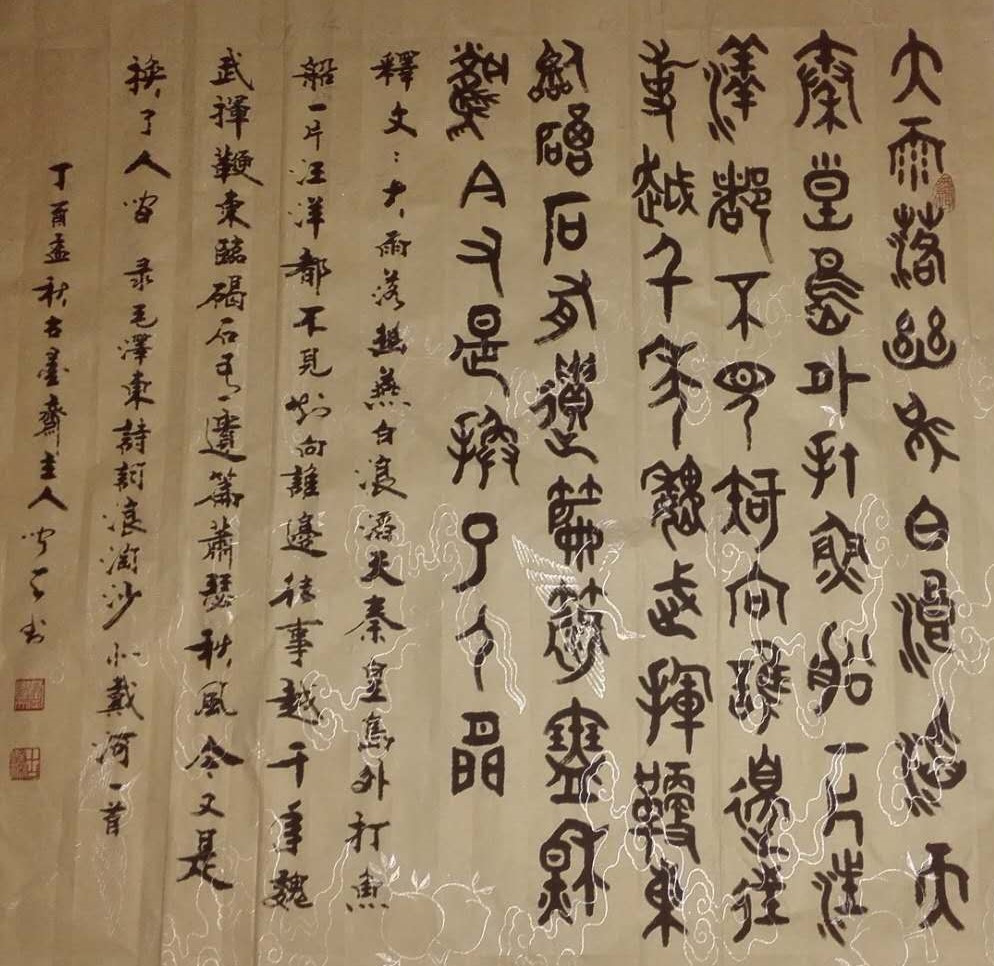 大雨落幽燕白浪滔天
秦皇島外打魚船一片汪
洋都不見知向誰邊往
事越千年魏武揮鞭東
臨碣石有遺篇蕭瑟秋
風今又是換了人間
釋文：大雨落幽燕白浪滔天秦皇島外打魚
船一片汪洋都不見知向誰邊往事越千年魏
武揮鞭東臨碣石有遺篇蕭瑟秋風今又是
換了人间 录毛澤東詩詞浪淘沙北戴河一首
丁酉孟秋古墨齋主人书